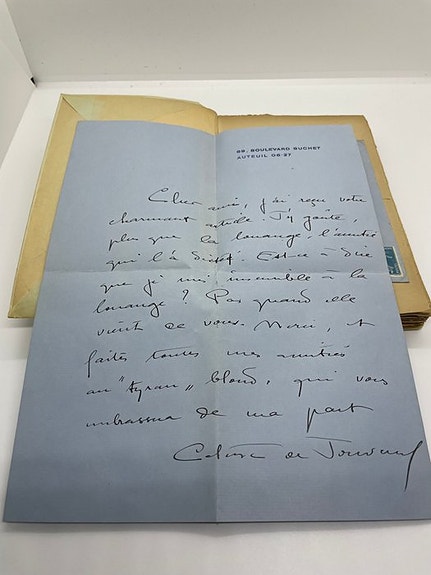 69, BOULEVARD SUCHET
AUTEUIL 06-27
Cher ami, j'ai reçu votre
charmant article. J'y goûte,
plus que la louange, l'amitié
qui l'a dictée. Est-ce à dire
que je suis insensible à la
louange ? Pas quand elle
vient de vous. Merci, et
faites toutes mes amitiés
au "tyran" blond, qui vous
embrassera de ma part
Colette de Jouvenel